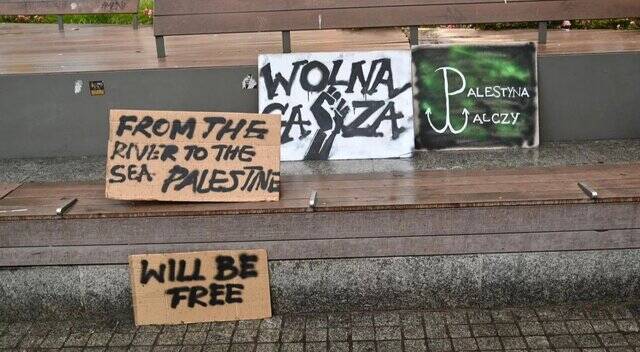 WOLNA
GAZA
PALESTYNA
WALCZY
FROM THE
RIVER TO THE
SEA PALESTINE
WILL BE
FREE